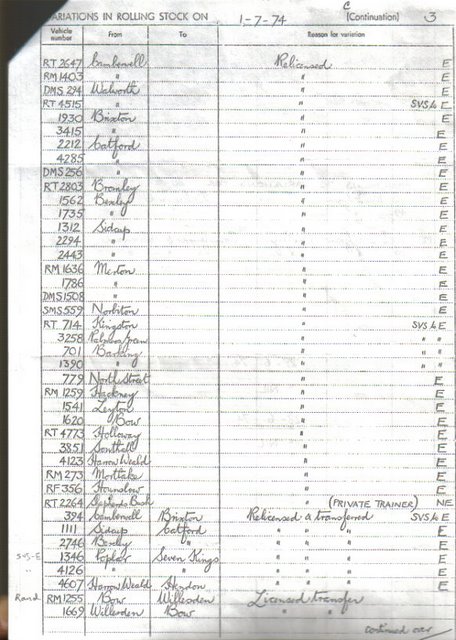 VARIATIONS IN ROLLING STOCK ON 1-7-74 C (Continuation) 3
Vehicle number From To Reason for variation
RT 2647 Camberwell Relicensed E
RM 1403 " " E
DMS 294 Walworth " E
RT 4515 " " SVS to E
1930 Brixton " E
3415 " " E
2212 Catford " E
4285 " " E
DMS 256 " " E
RT 2803 Bromley " E
1562 Bexley " E
1735 " " E
1312 Sidcup " E
2294 " " E
2443 " " E
RM 1636 Merton " E
1786 " " E
DMS 1508 " " E
SMS 559 Norbiton " E
RT 714 Kingston " SVS to E
3258 Palmers Green " " "
701 Barking " " "
1390 " " " "
779 North Street " E
RM 1259 Hackney " E
1541 Leyton " E
1620 Bow " E
RT 4773 Holloway " E
3851 Southall " E
4123 Harrow Weald " E
RM 273 Mortlake " E
RF 356 Hounslow " E
RT 2264 Shepherds Bush " (PRIVATE TRAINER) NE
394 Camberwell Brixton Relicensed & transferred SVS to E
1111 Sidcup Catford " " " E
2746 Bexley " " " " E
SVS-E 1346 Poplar Seven Kings " " " E
" 4126 " " " " " E
4607 Harrow Weald Hendon " " " E
Rand RM 1255 Bow Willesden Licensed transfer
1669 Willesden Bow " "
continued over